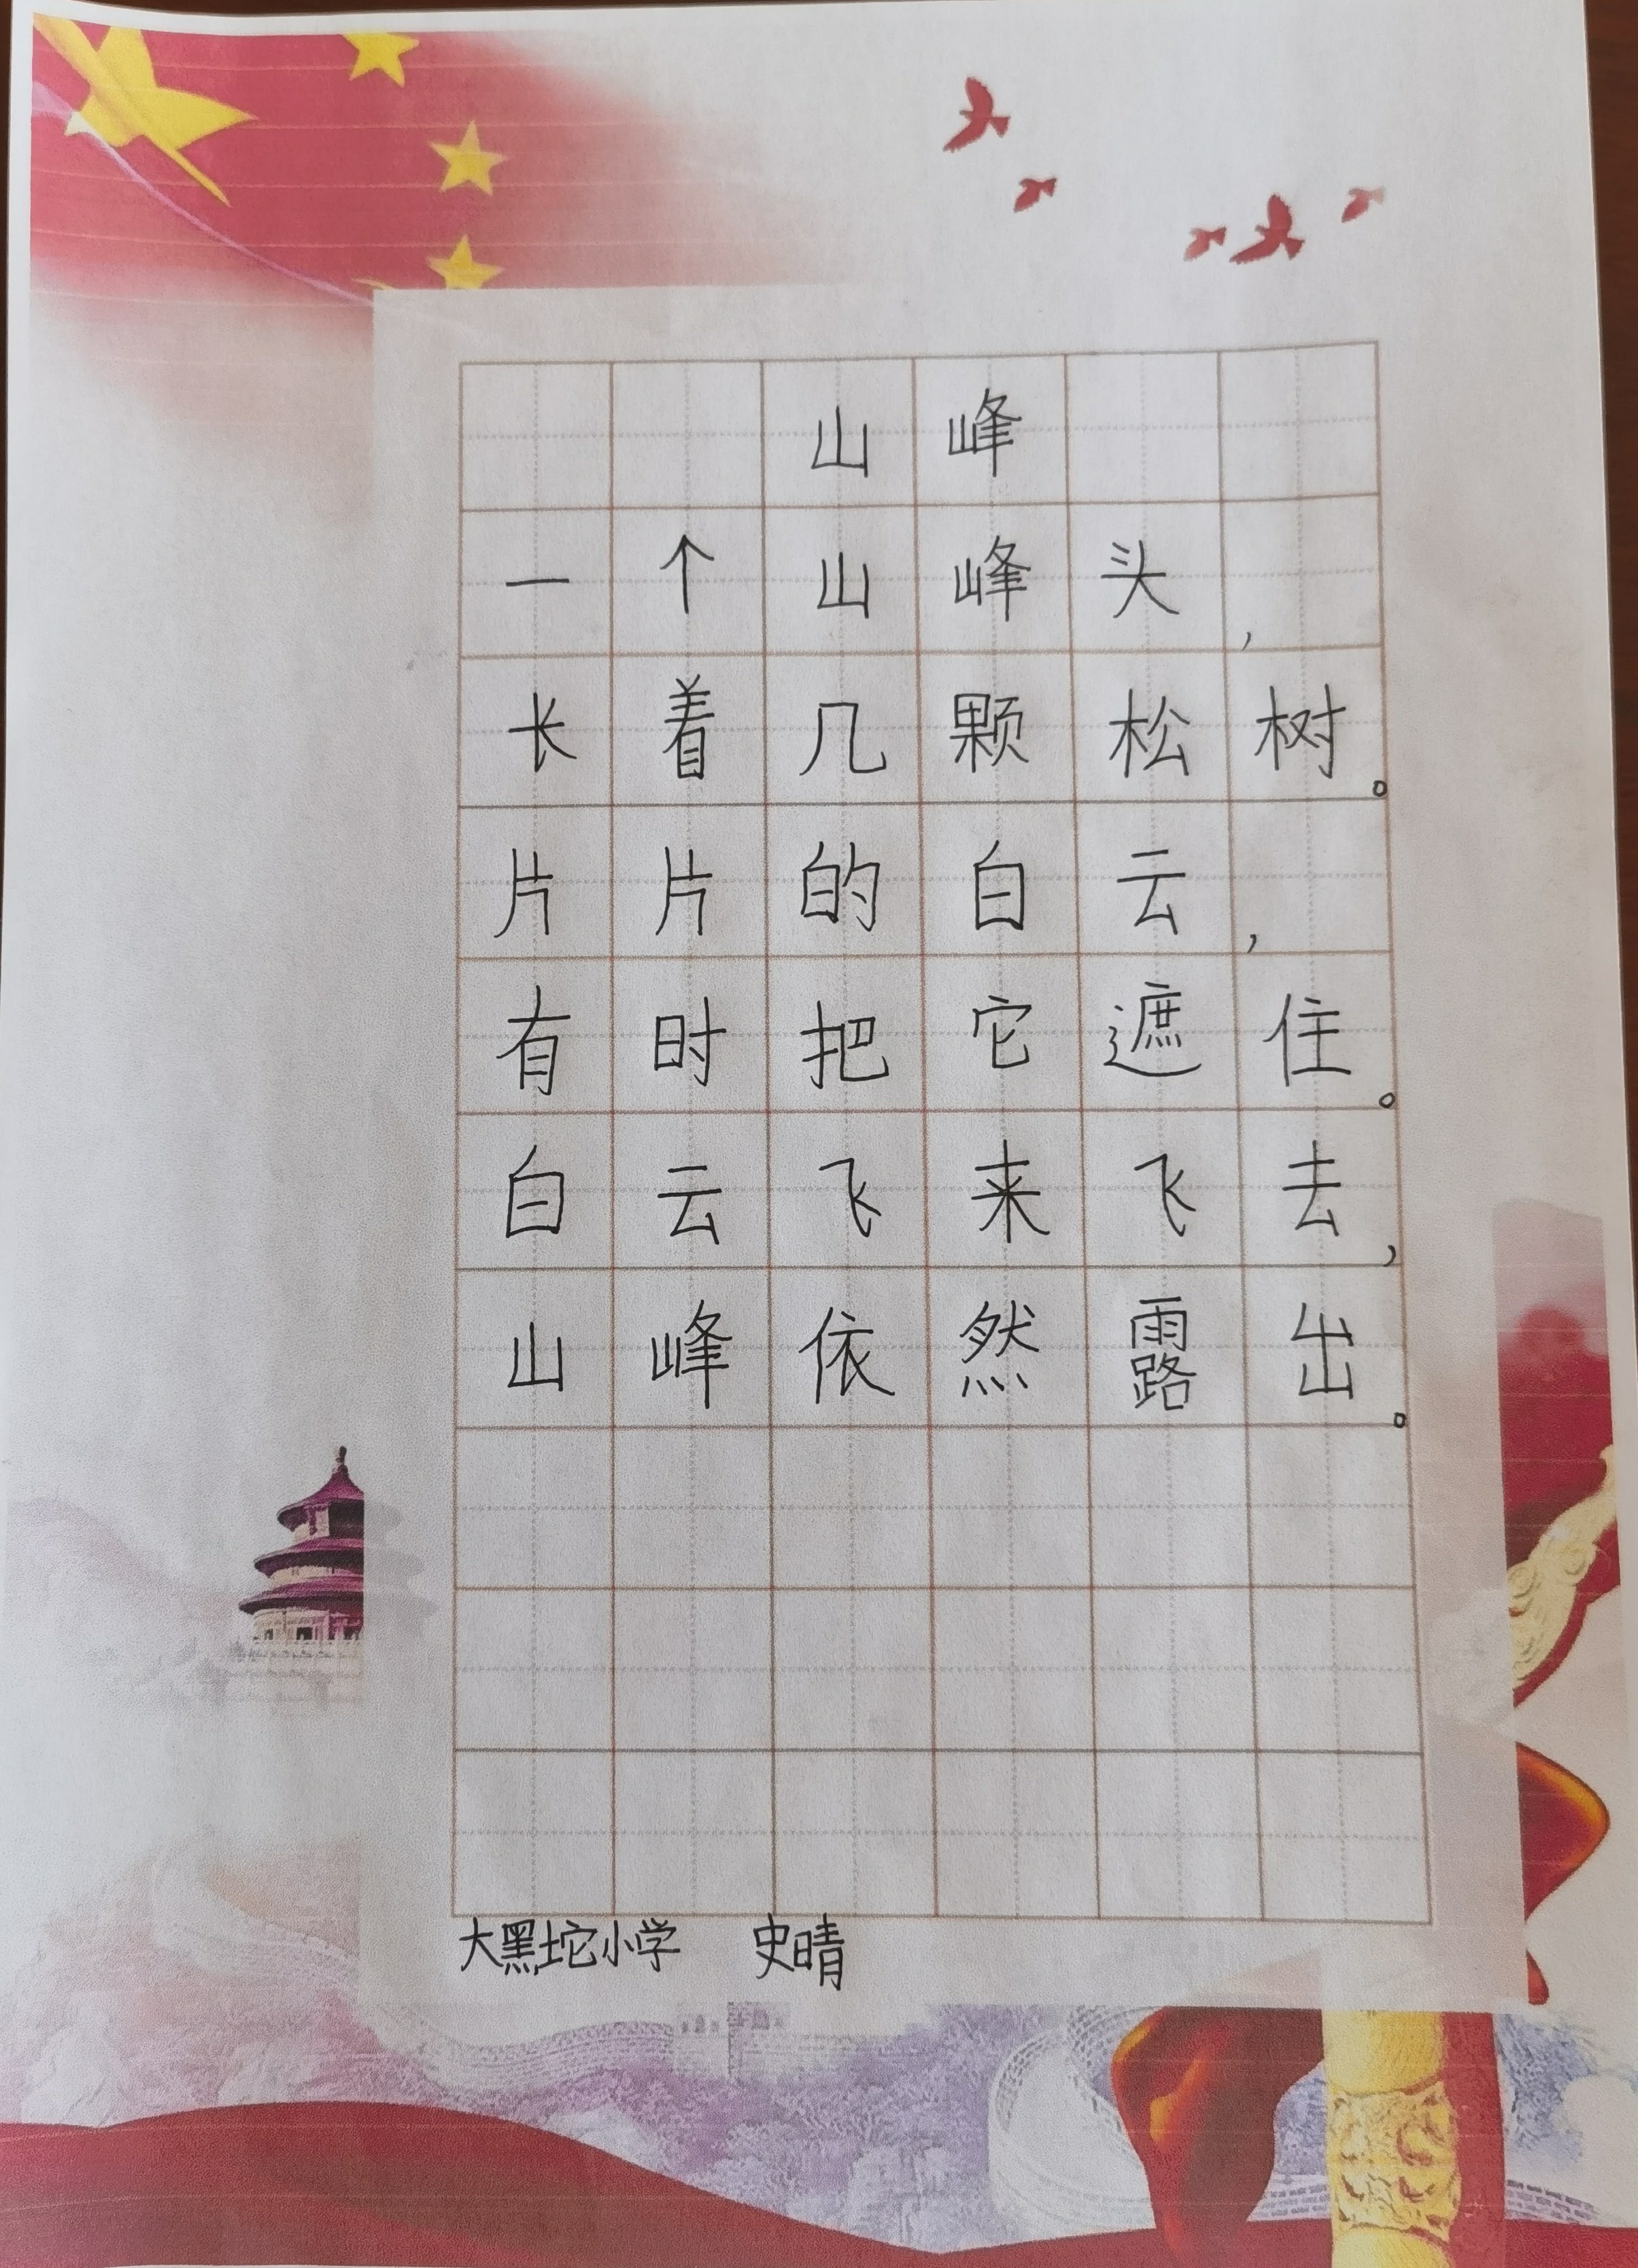 山峰
一个山峰头，
长着几颗松树。
片片的白云，
有时把它遮住。
白云飞来飞去，
山峰依然露出。
大黑坨小学 史晴